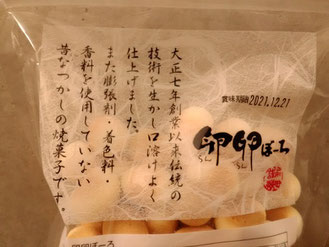 大正七年創業以来伝統の
技術を生かし口溶けよく
仕上げました。
また膨張剤・着色料・
香料を使用していない
昔なつかしの焼菓子です。
賞味期限 2021.12.21
卵卵ぼーろ
らん らん
卵卵ぼーろ